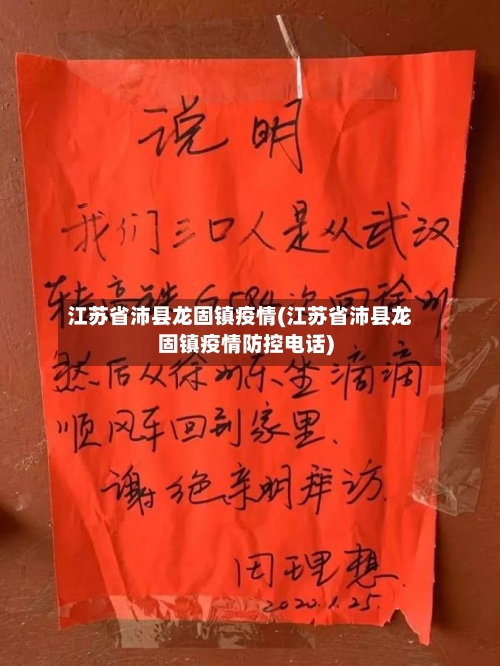 说明
我们三口人是从武汉
转高铁
江苏省沛县龙固镇疫情(江苏省沛县龙
固镇疫情防控电话)
然后从徐州东坐滴滴
顺风车回到家里、
谢绝亲明拜访.
周理想.
2020.1.25.